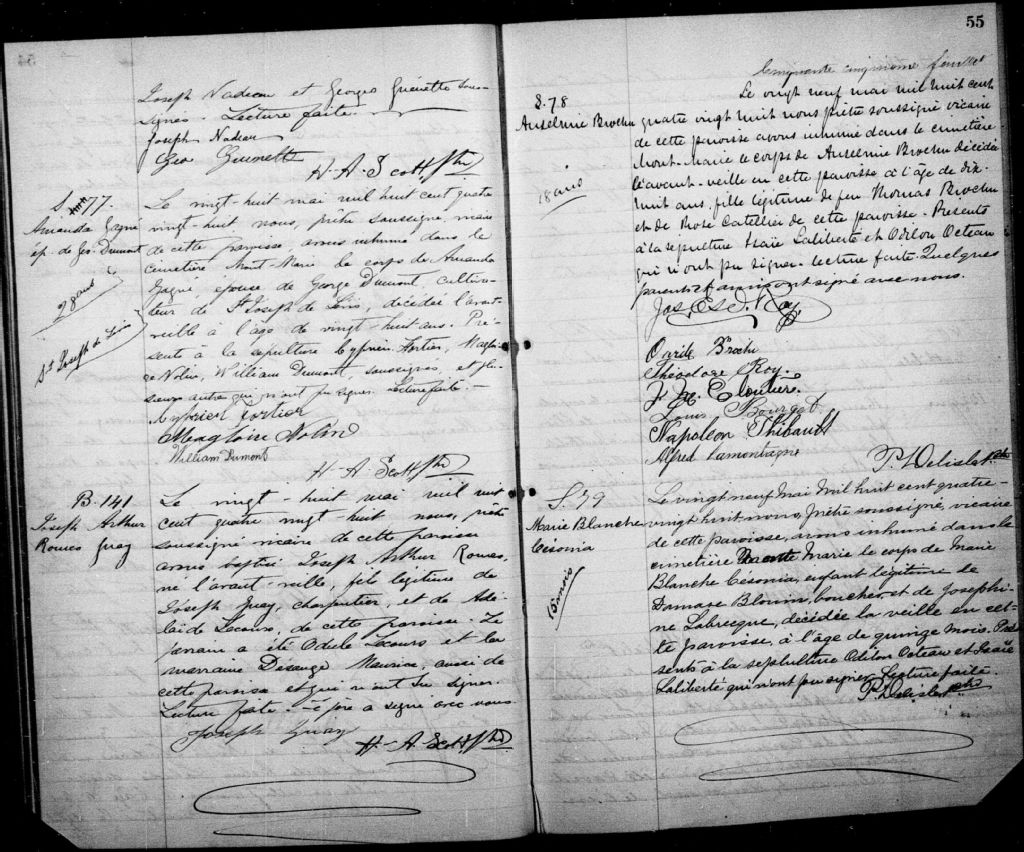 Joseph Nadeau et Georges Guénette sous-
signés. Lecture faite.
Joseph Nadeau
Geo Guenette
H. A. Scott Ptre
S. 77.
Amanda Gagné
ép. de Geo. Dumont
28 ans
St Joseph de Lévis
Le vingt-huit mai mil huit cent quatre
vingt-huit, nous, prêtre soussigné, vicaire
de cette paroisse, avons inhumé dans le
cimetière Mont-Marie le corps de Amanda
Gagné, épouse de George Dumont, cultiva-
teur de St Joseph de Lévis, décédée l'avant
veille à l'âge de vingt-huit ans. Pré-
sents à la sépulture Cyprien Fortier, Magloi-
re Nolin, William Dumont, soussignés, et plu-
sieurs autres qui n'ont pu signer. Lecture faite.
Cyprien Fortier
Magloire Nolin
William Dumont
H. A. Scott Ptre
B. 141
Joseph Arthur
Romeo Guay
Le vingt-huit mai mil huit
cent quatre vingt huit nous, prêtre
soussigné vicaire de cette paroisse
avons baptisé Joseph Arthur Romeo,
né l'avant-veille, fils légitime de
Joseph Guay, charpentier, et de Adé-
laïde Lecours, de cette paroisse. Le
parrain a été Lecours et la
marraine aussi de
cette paroisse et qui n'ont su signer.
Lecture faite. Le père a signé avec nous
Joseph Guay
H. A. Scott Ptre
55
Cinquante cinquième feuillet
S. 78
Anselmie Brochu
18 ans
Le vingt neuf mai mil huit cent
quatre vingt huit nous prêtre soussigné vicaire
de cette paroisse avons inhumé dans le cimetière
Mont-Marie le corps de Anselmie Brochu décédée
l'avant-veille en cette paroisse à l'âge de dix-
huit ans, fille légitime de feu Thomas Brochu
et de Rose Catellier de cette paroisse. Présents
à la sépulture Isaïe Laliberté et Odilon Octeau
qui n'ont pu signer. lecture faite. Quelques
parents et amis ont signé avec nous.
Jos. Roy
Ovide Brochu
Théodore Roy.
Cloutier.
Louis Bourget.
Napoléon Thibault
Alfred Lamontagne
P. Delisle Ptre
S. 79
Marie Blanche
Césonia
15 mois
Le vingt neuf Mai Mil huit cent quatre-
vingt huit nous, Prêtre soussigné, vicaire
de cette paroisse, avons inhumé dans le
cimetière Marie le corps de Marie
Blanche Césonia, enfant légitime de
Damase Blouin, boucher, et de Josephi-
ne Labrecque, décédée la veille en cet-
te paroisse, à l'âge de quinze mois. Pré-
sents à la sépulture Odilon Octeau et Isaïe
Laliberté qui n'ont pu signer. Lecture faite.
P. Delisle Ptre